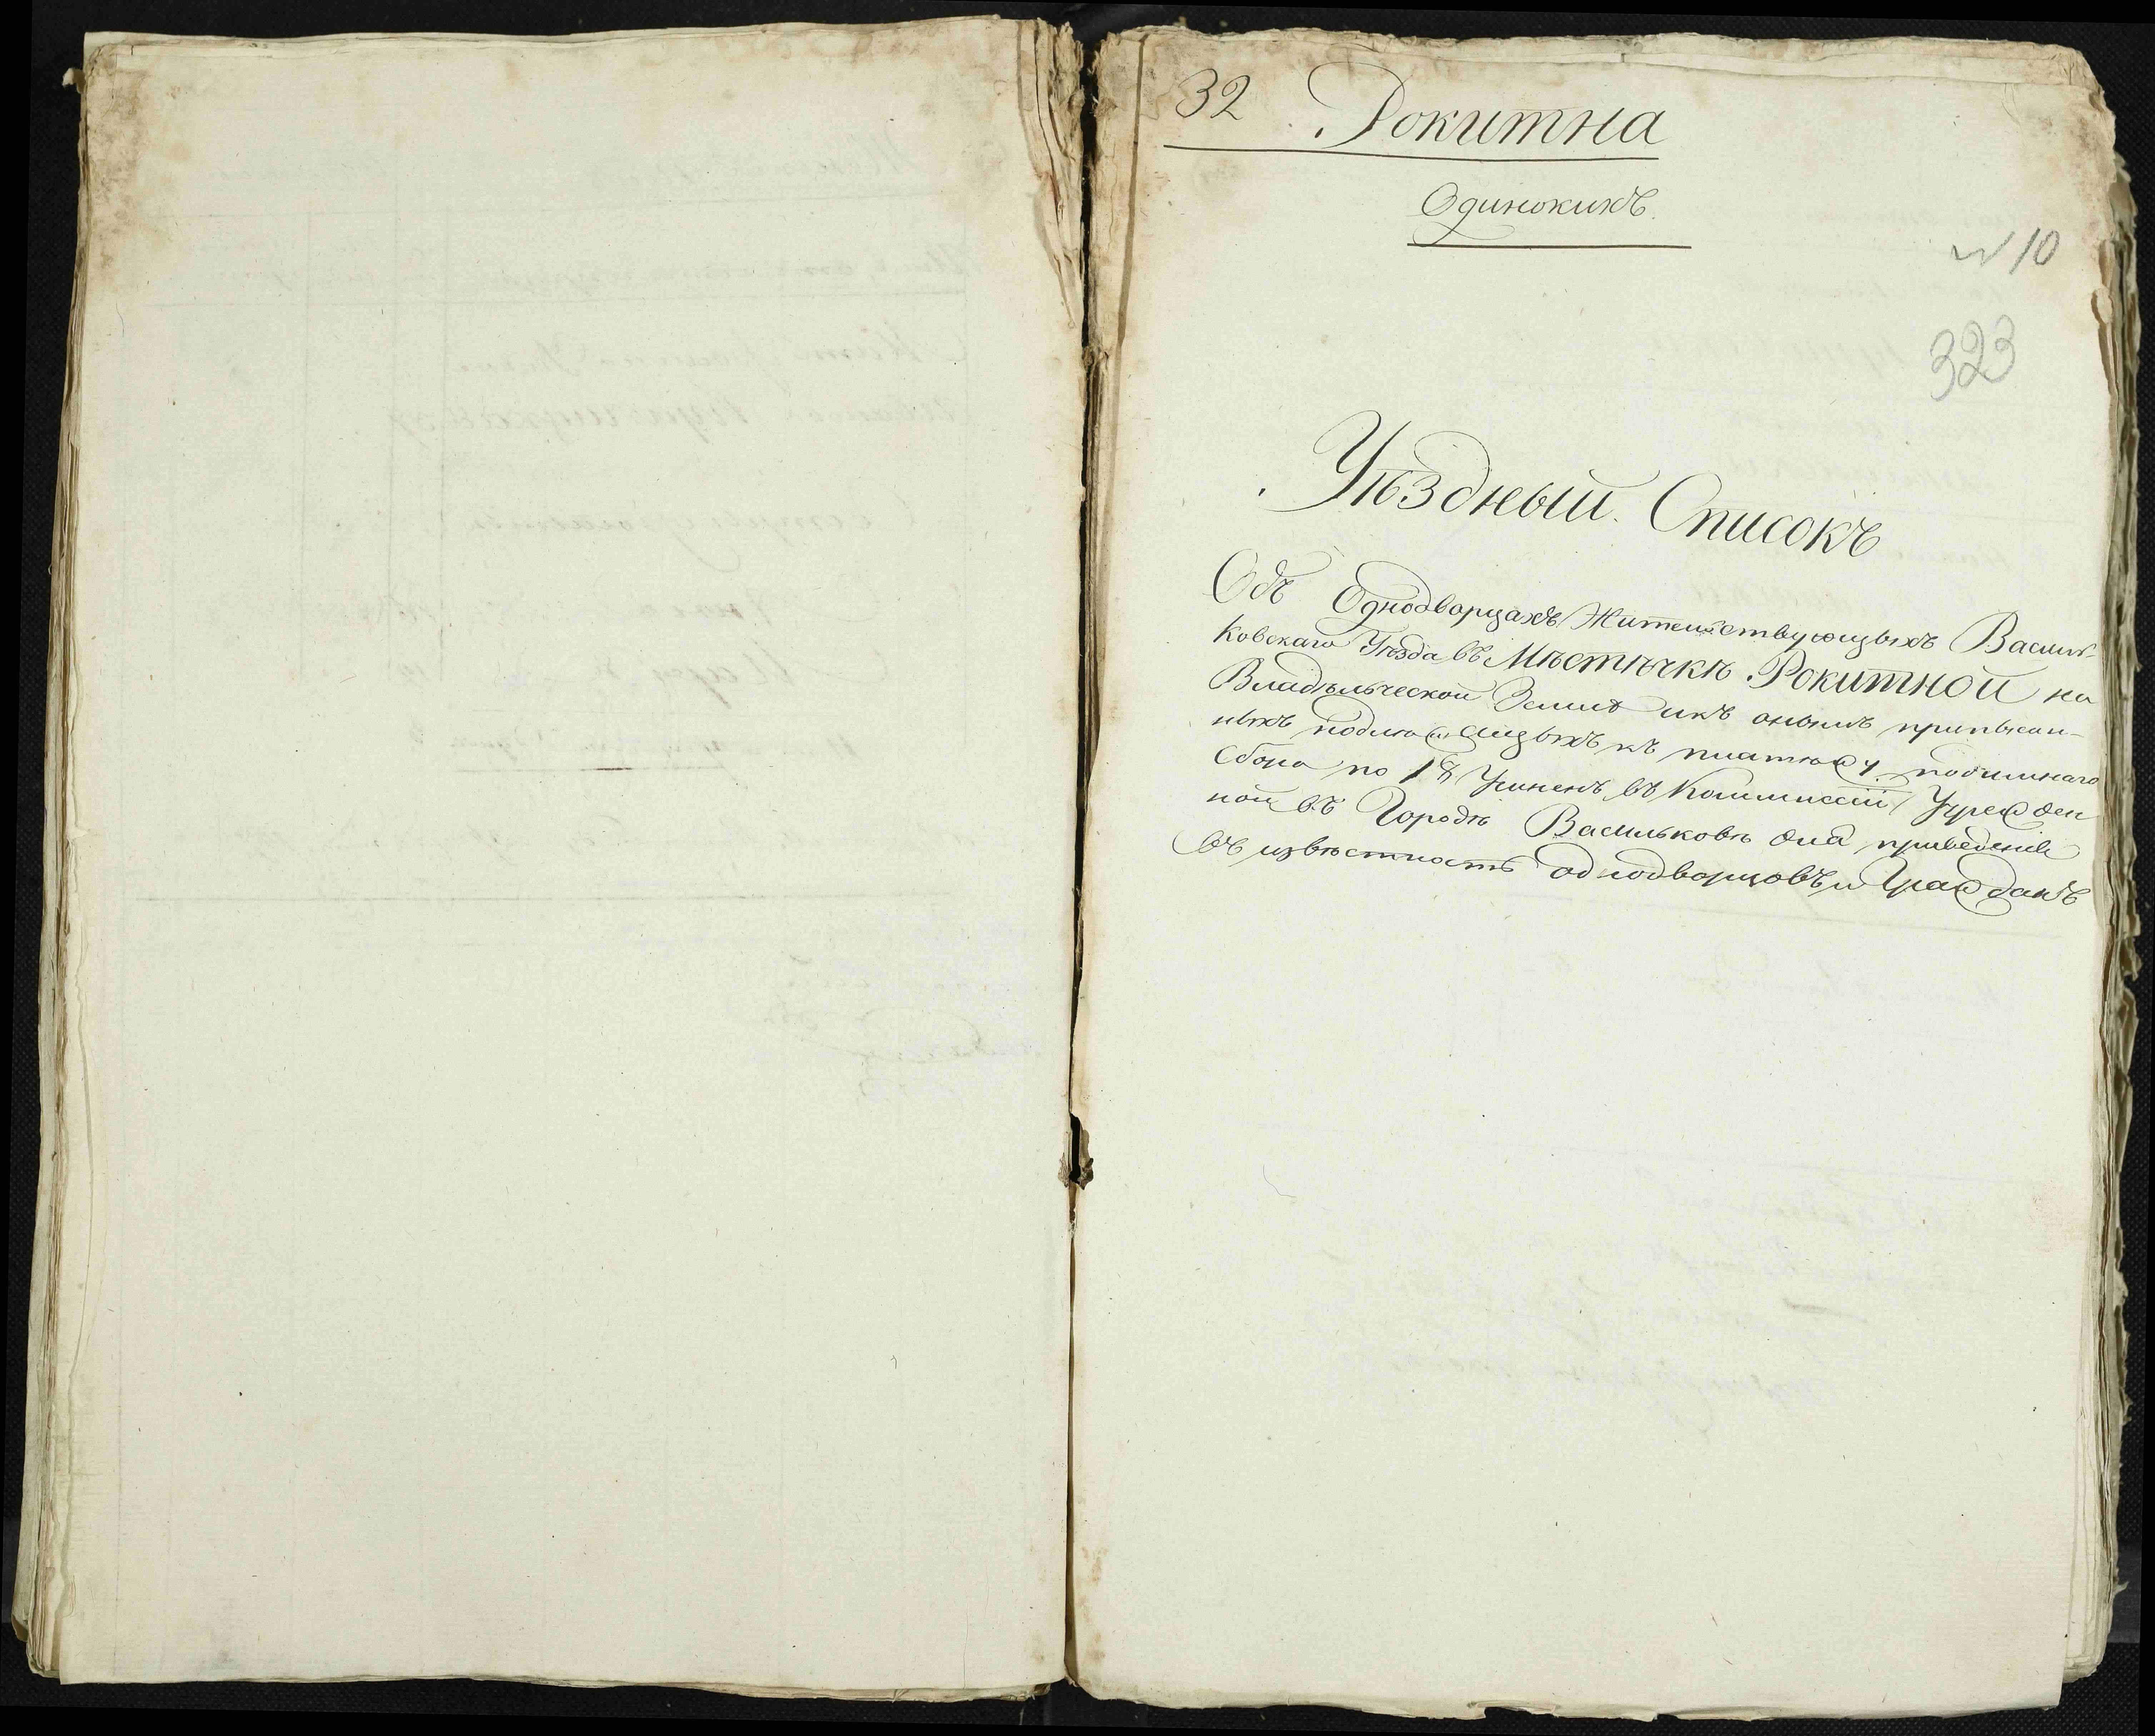 32 Рокитна
Одинокихъ.
N 10
323
Уѣздный Списокъ
Объ Однодворцахъ Жительствующыхъ Василь-
ковскаго Уѣзда въ Мѣстѣчкѣ Рокитной на
Владѣльческой Землѣ икъ онымъ приписан-
ныхъ подлежащыхъ къ платежу подымнаго
Сбора по 18 Учиненъ въ Коммиссіи Учрежден
ной въ Городѣ Васильковѣ для приведенія
въ извѣстность однодворцовъ и Гражданъ